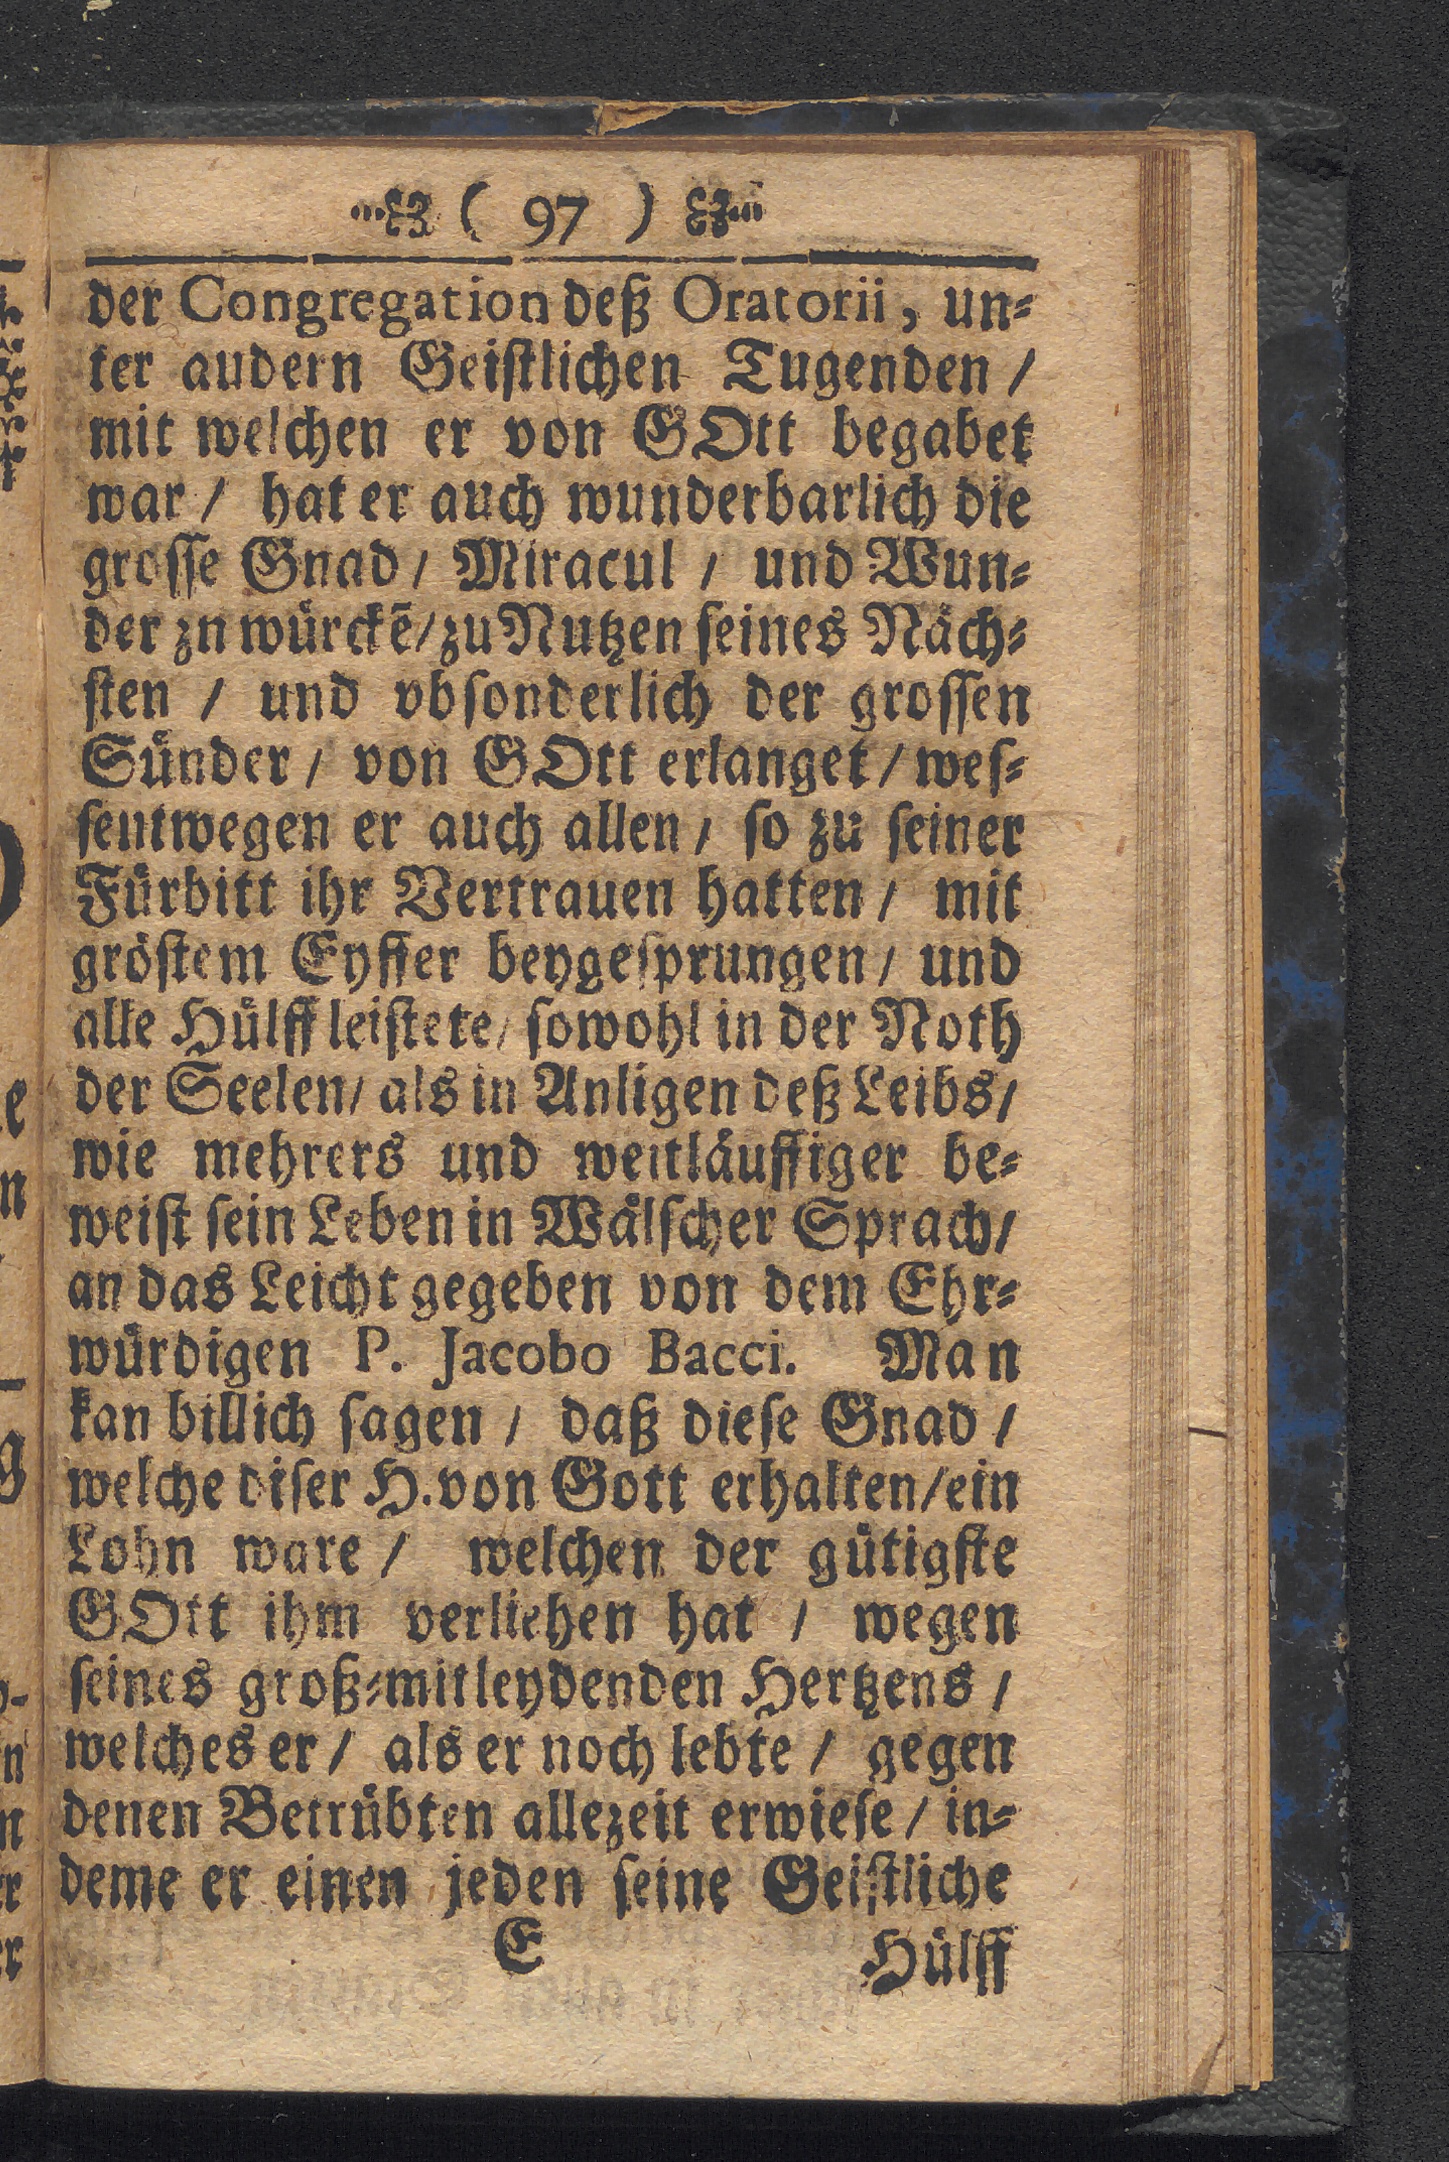 ( 97 )
der Congregation deß Oratorii, un⸗
ter audern Geiſtlichen Tugenden /
mit welchen er von GOtt begabet
war / hat er auch wunderbarlich die
groſſe Gnad / Miracul / und Wun⸗
der zn wuͤrckẽ / zu Nutzen ſeines Naͤch⸗
ſten / und vbſonderlich der groſſen
Suͤnder / von GOtt erlanget / weſ⸗
ſentwegen er auch allen / ſo zu ſeiner
Fuͤrbitt ihr Vertrauen hatten / mit
groͤſtem Eyffer beygeſprungen / und
alle Huͤlff leiſtete / ſowohl in der Noth
der Seelen / als in Anligen deß Leibs /
wie mehrers und weitlaͤuffiger be⸗
weiſt ſein Leben in Waͤlſcher Sprach /
an das Leicht gegeben von dem Ehr⸗
wuͤrdigen P. Jacobo Bacci. Man
kan billich ſagen / daß dieſe Gnad /
welche diſer H. von Gott erhalten / ein
Lohn ware / welchen der guͤtigſte
GOtt ihm verliehen hat / wegen
ſeines groß⸗mitleydenden Hertzens /
welches er / als er noch lebte / gegen
denen Betruͤbten allezeit erwieſe / in⸗
deme er einen jeden ſeine Geiſtliche
E Huͤlff